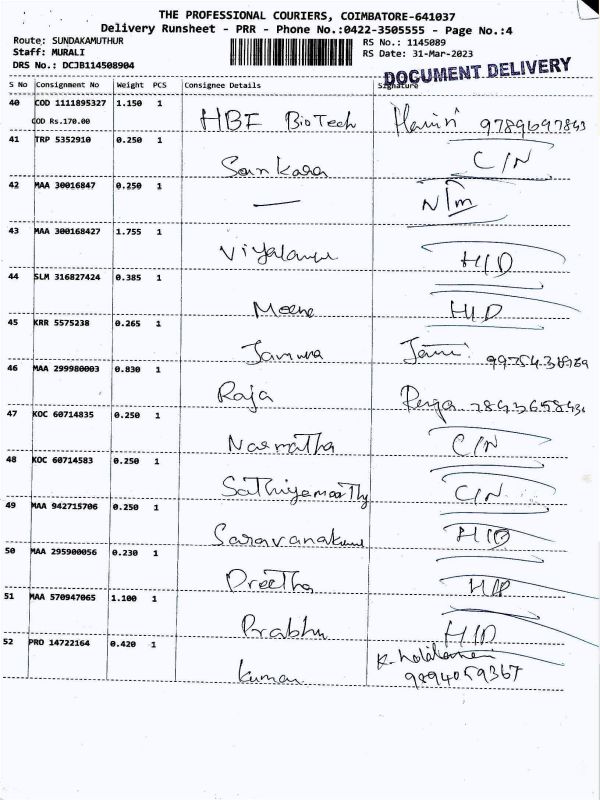 THE PROFESSIONAL COURIERS, COIMBATORE-641037
Delivery Runsheet - PRR - Phone No.:0422-3505555 - Page No.:4
Route: SUNDAKAMUTHUR
RS No.: 1145089
Staff: MURALI
RS Date: 31-Mar-2023
DRS No.: DCJB114508904
DOCUMENT DELIVERY
S No Consignment No Weight PCS Consignee Details Signature
40 COD 1111895327 1.150 1
COD Rs.170.00
HBF BioTech 9789697843
41 TRP 5352910 0.250 1
Sankara C/N
42 MAA 30016847 0.250 1
— N/m
43 MAA 300168427 1.755 1
H/D
44 SLM 316827424 0.385 1
Meena H/D
45 KRR 5575238 0.265 1
Jamuna
46 MAA 299980003 0.830 1
Raja
47 KOC 60714835 0.250 1
Narmatha C/N
48 KOC 60714583 0.250 1
Sathiyamoorthy C/N
49 MAA 942715706 0.250 1
Saravanakumar H/D
50 MAA 295900056 0.230 1
Preetha H/D
51 MAA 570947065 1.100 1
Prabhu H/D
52 PRO 14722164 0.420 1
kumar 9894059367